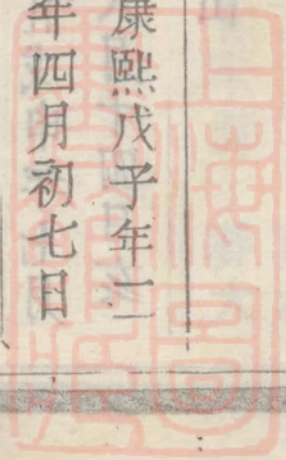 康熙戊子年二
年四月初七日